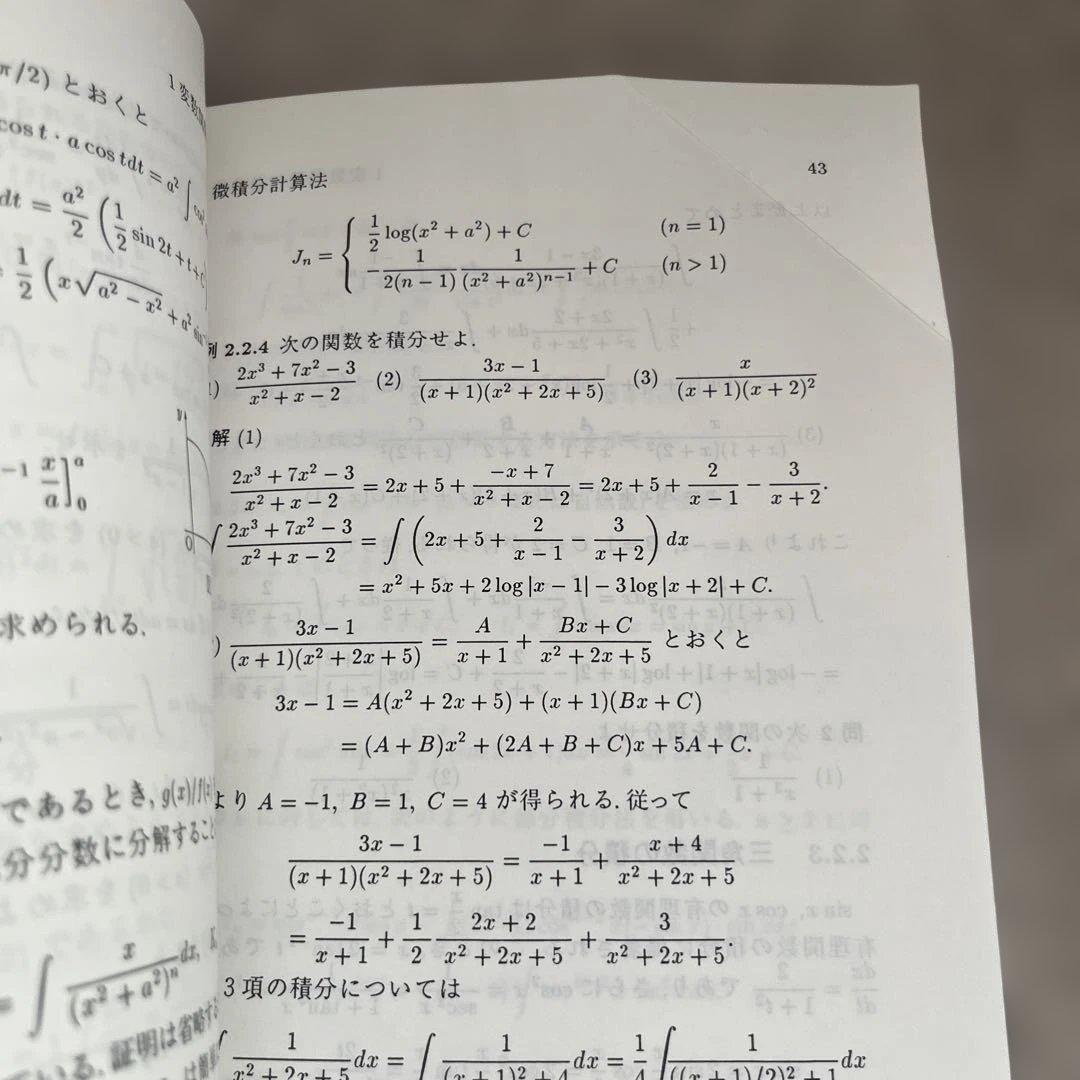 π/2) とおくと
cos t · a cos tdt = a² ∫
dt = a²/2 (1/2 sin 2t + t +
1/2 (x√(a² − x²) + a² sin
−1 x/a]₀ᵃ
求められる.
であるとき, g(x)/f(
分分数に分解すること
= ∫ x/(x² + a²)ⁿ dx,
証明は省略する
微積分計算法 43
Jₙ = { 1/2 log(x² + a²) + C (n = 1)
−1/(2(n − 1)) 1/(x² + a²)ⁿ⁻¹ + C (n > 1)
例 2.2.4 次の関数を積分せよ.
) (2x³ + 7x² − 3)/(x² + x − 2) (2) (3x − 1)/((x + 1)(x² + 2x + 5)) (3) x/((x + 1)(x + 2)²)
解 (1)
(2x³ + 7x² − 3)/(x² + x − 2) = 2x + 5 + (−x + 7)/(x² + x − 2) = 2x + 5 + 2/(x − 1) − 3/(x + 2).
∫ (2x³ + 7x² − 3)/(x² + x − 2) = ∫ (2x + 5 + 2/(x − 1) − 3/(x + 2)) dx
= x² + 5x + 2 log |x − 1| − 3 log |x + 2| + C.
) (3x − 1)/((x + 1)(x² + 2x + 5)) = A/(x + 1) + (Bx + C)/(x² + 2x + 5) とおくと
3x − 1 = A(x² + 2x + 5) + (x + 1)(Bx + C)
= (A + B)x² + (2A + B + C)x + 5A + C.
より A = −1, B = 1, C = 4 が得られる. 従って
(3x − 1)/((x + 1)(x² + 2x + 5)) = −1/(x + 1) + (x + 4)/(x² + 2x + 5)
= −1/(x + 1) + 1/2 · (2x + 2)/(x² + 2x + 5) + 3/(x² + 2x + 5).
3 項の積分については
∫ 1/(x² + 2x + 5) dx = ∫ 1/((x + 1)² + 4) dx = 1/4 ∫ 1/(((x + 1)/2)² + 1) dx